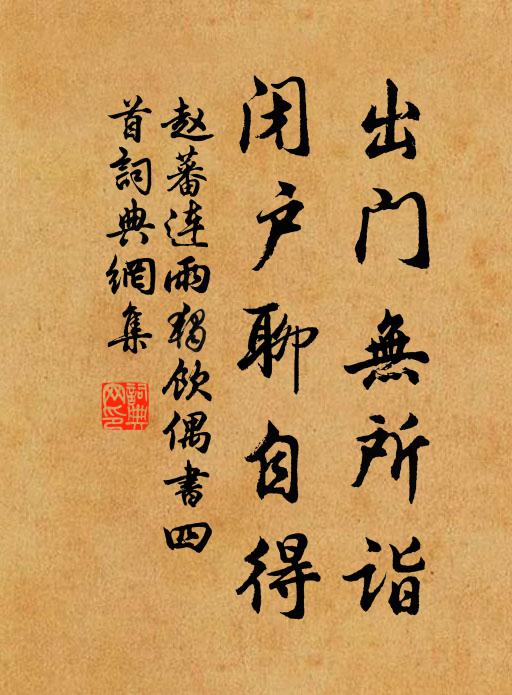 出门無所诣
闭户聊自得
赵蕃连雨独饮偶书四
首词典網集
詞典
网印